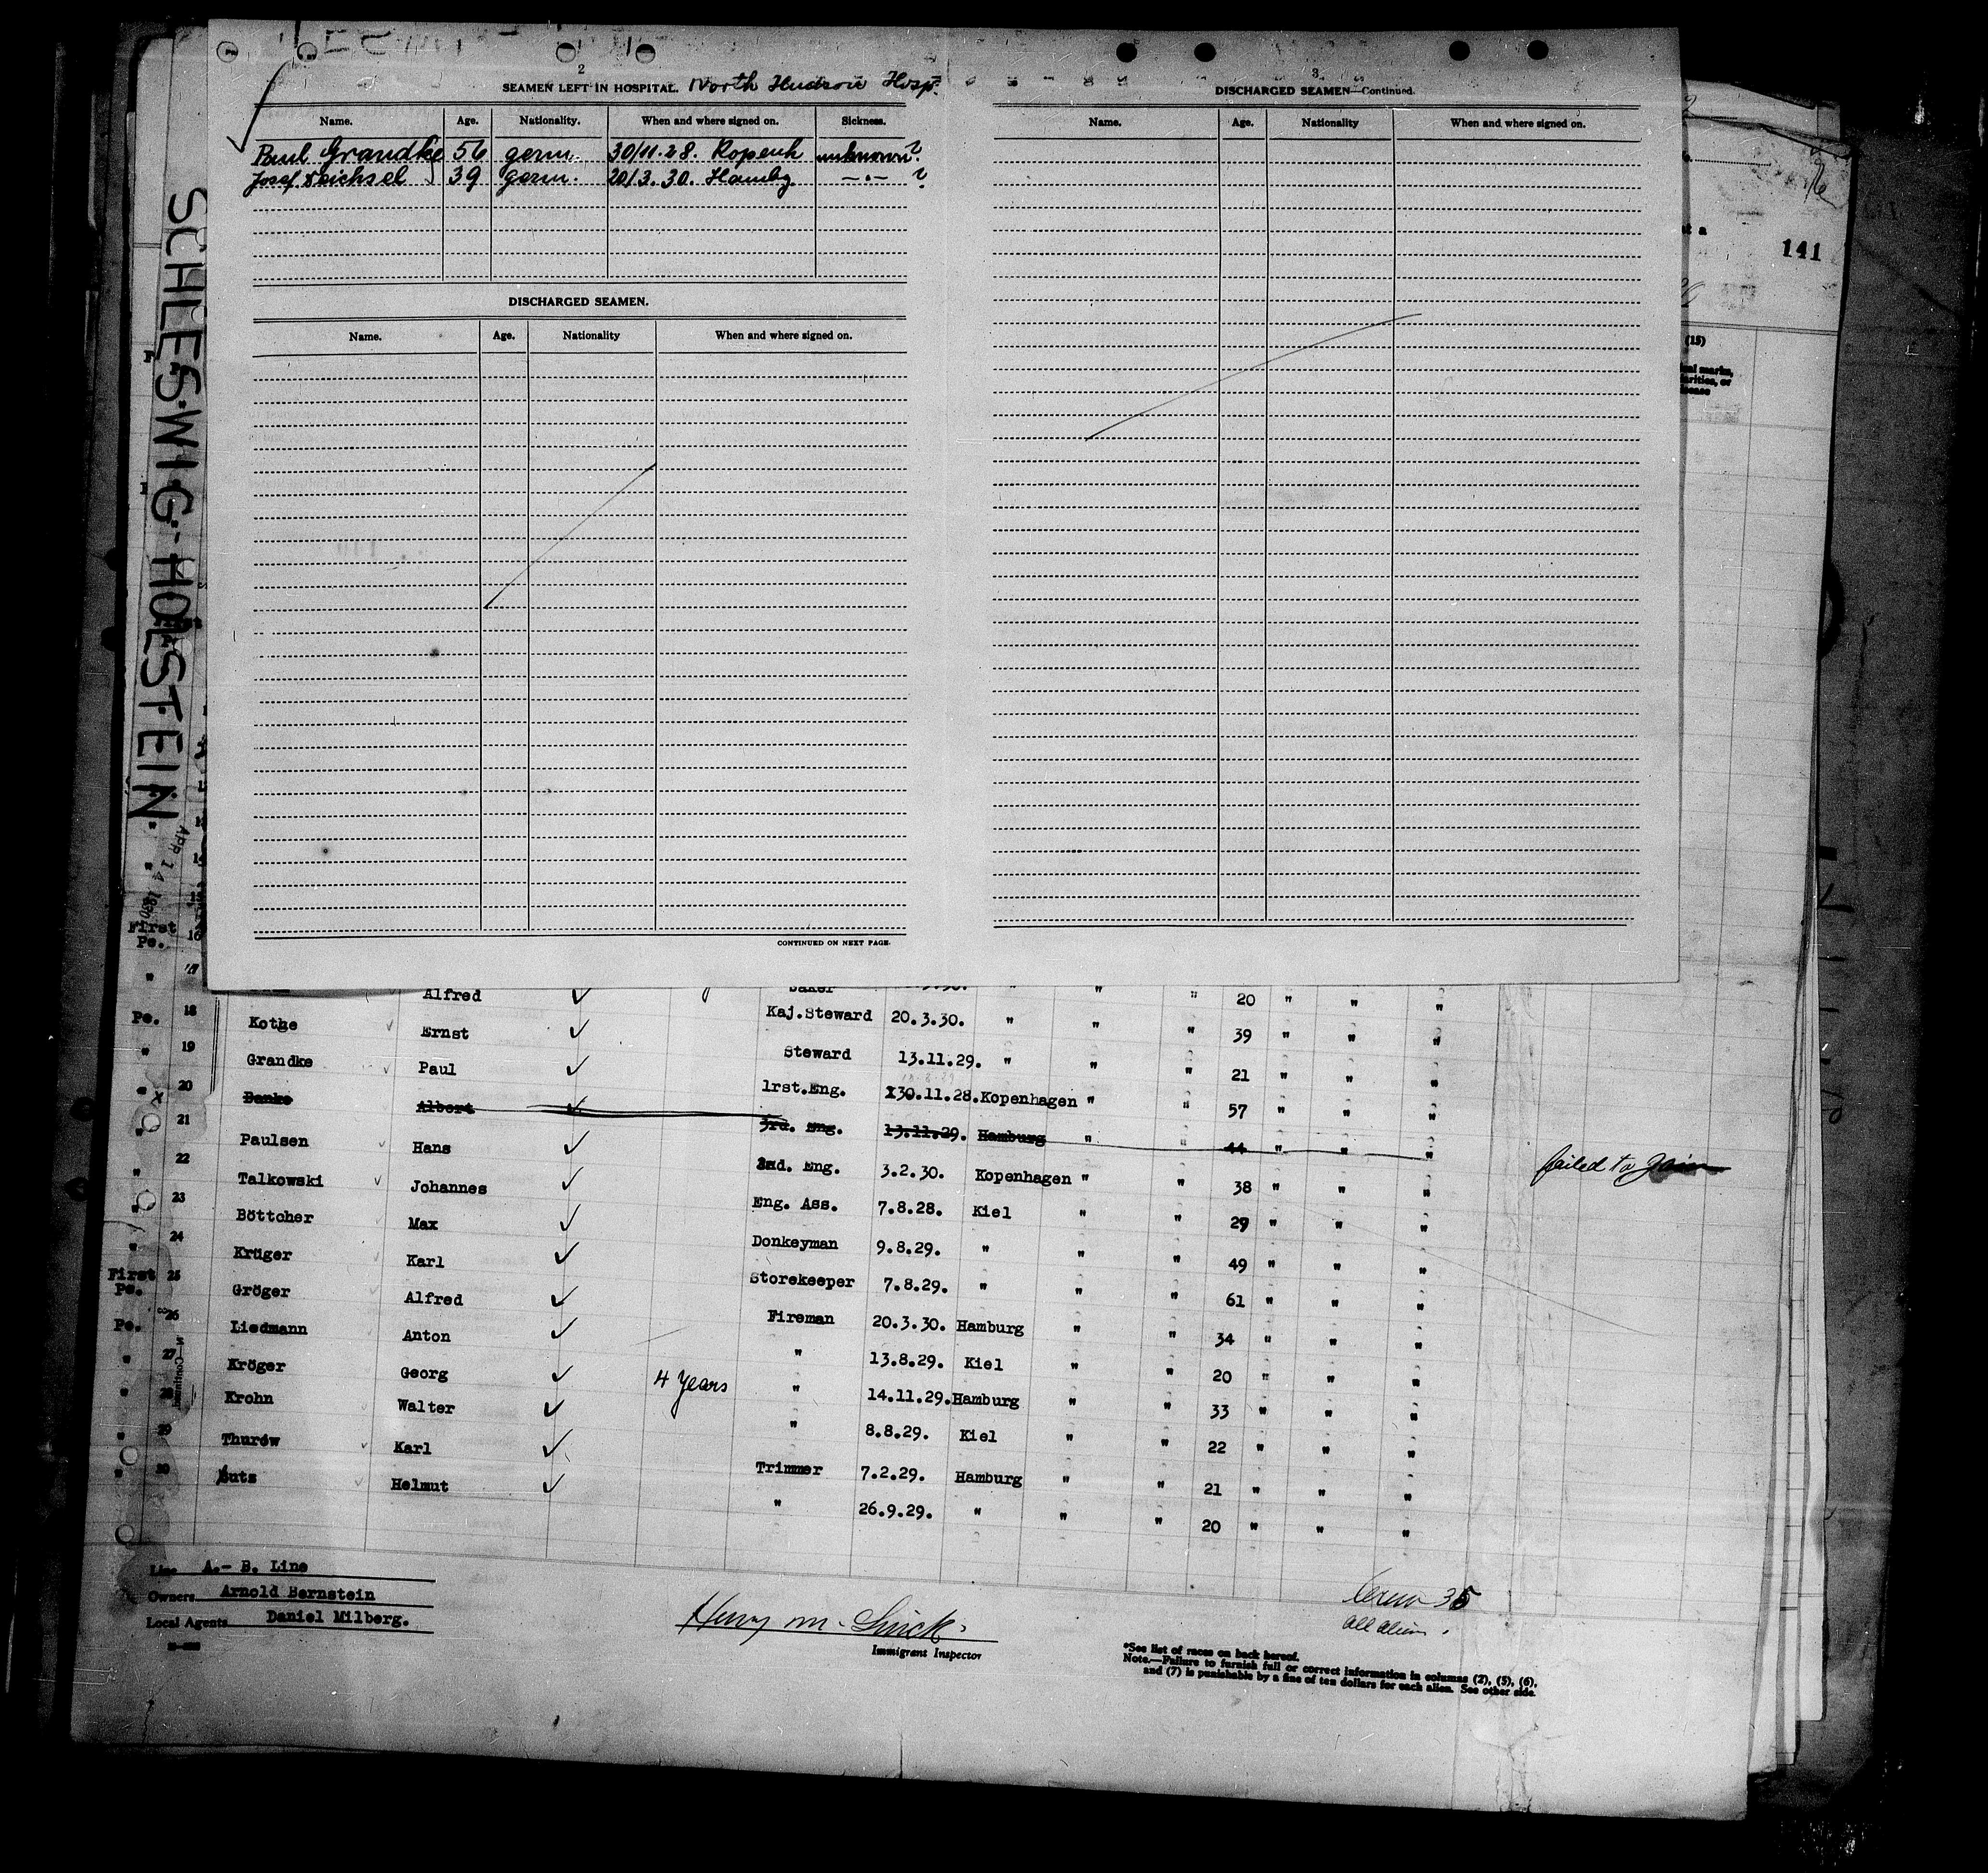 2
SEAMEN LEFT IN HOSPITAL. North Hudson Hosp.
Name. Age. Nationality. When and where signed on. Sickness.
Paul Grandke 56 germ. 30/11.28. Kopenh unknown ?
Josef 39 germ. 20/3.30. Hambg. -.- ?
DISCHARGED SEAMEN.
Name. Age. Nationality When and where signed on.
CONTINUED ON NEXT PAGE.
3
DISCHARGED SEAMEN—Continued.
Name. Age. Nationality When and where signed on.
141
(15)
SCHLESWIG-HOLSTEIN
APR 14 1930
First
Pe. 16
" 17 Alfred Baker " " " 20 " " "
Pe. 18 Kothe Ernst Kaj.Steward 20.3.30. " " " 39 " " "
" 19 Grandke Paul Steward 13.11.29. " " " 21 " " "
" 20 Danke Albert 1rst.Eng. 30.11.28. Kopenhagen " " 57 " " "
" 21 Paulsen Hans 3rd. Eng. 13.11.29. Hamburg " " 44 " " " failed to join
" 22 Talkowski Johannes 2nd. Eng. 3.2.30. Kopenhagen " " 38 " " "
" 23 Böttcher Max Eng. Ass. 7.8.28. Kiel " " 29 " " "
" 24 Krüger Karl Donkeyman 9.8.29. " " " 49 " " "
First
Pe. 25 Gröger Alfred Storekeeper 7.8.29. " " " 61 " " "
Pe. 26 Liedmann Anton Fireman 20.3.30. Hamburg " " 34 " " "
" 27 Kröger Georg " 13.8.29. Kiel " " 20 " " "
" 28 Krohn Walter 4 years " 14.11.29. Hamburg " " 33 " " "
" 29 Thurow Karl " 8.8.29. Kiel " " 22 " " "
" 30 Huts Helmut Trimmer 7.2.29. Hamburg " " 21 " " "
" 26.9.29. " " " 20 " " "
Line A.- B. Line
Owners Arnold Bernstein
Local Agents Daniel Milberg.
Henry M.
Immigrant Inspector
Crew 35
all alien.
*See list of races on back hereof.
Note.—Failure to furnish full or correct information in columns (2), (5), (6),
and (7) is punishable by a fine of ten dollars for each alien. See other side.